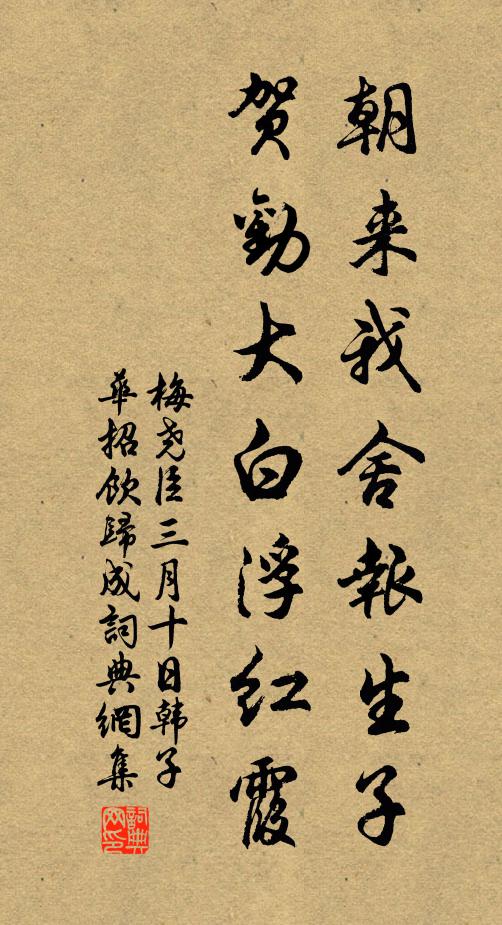 朝来我舍報生子
贺勸大白浮红霞
梅尧臣三月十日韩子
華招飲歸成詞典網集
詞典网印